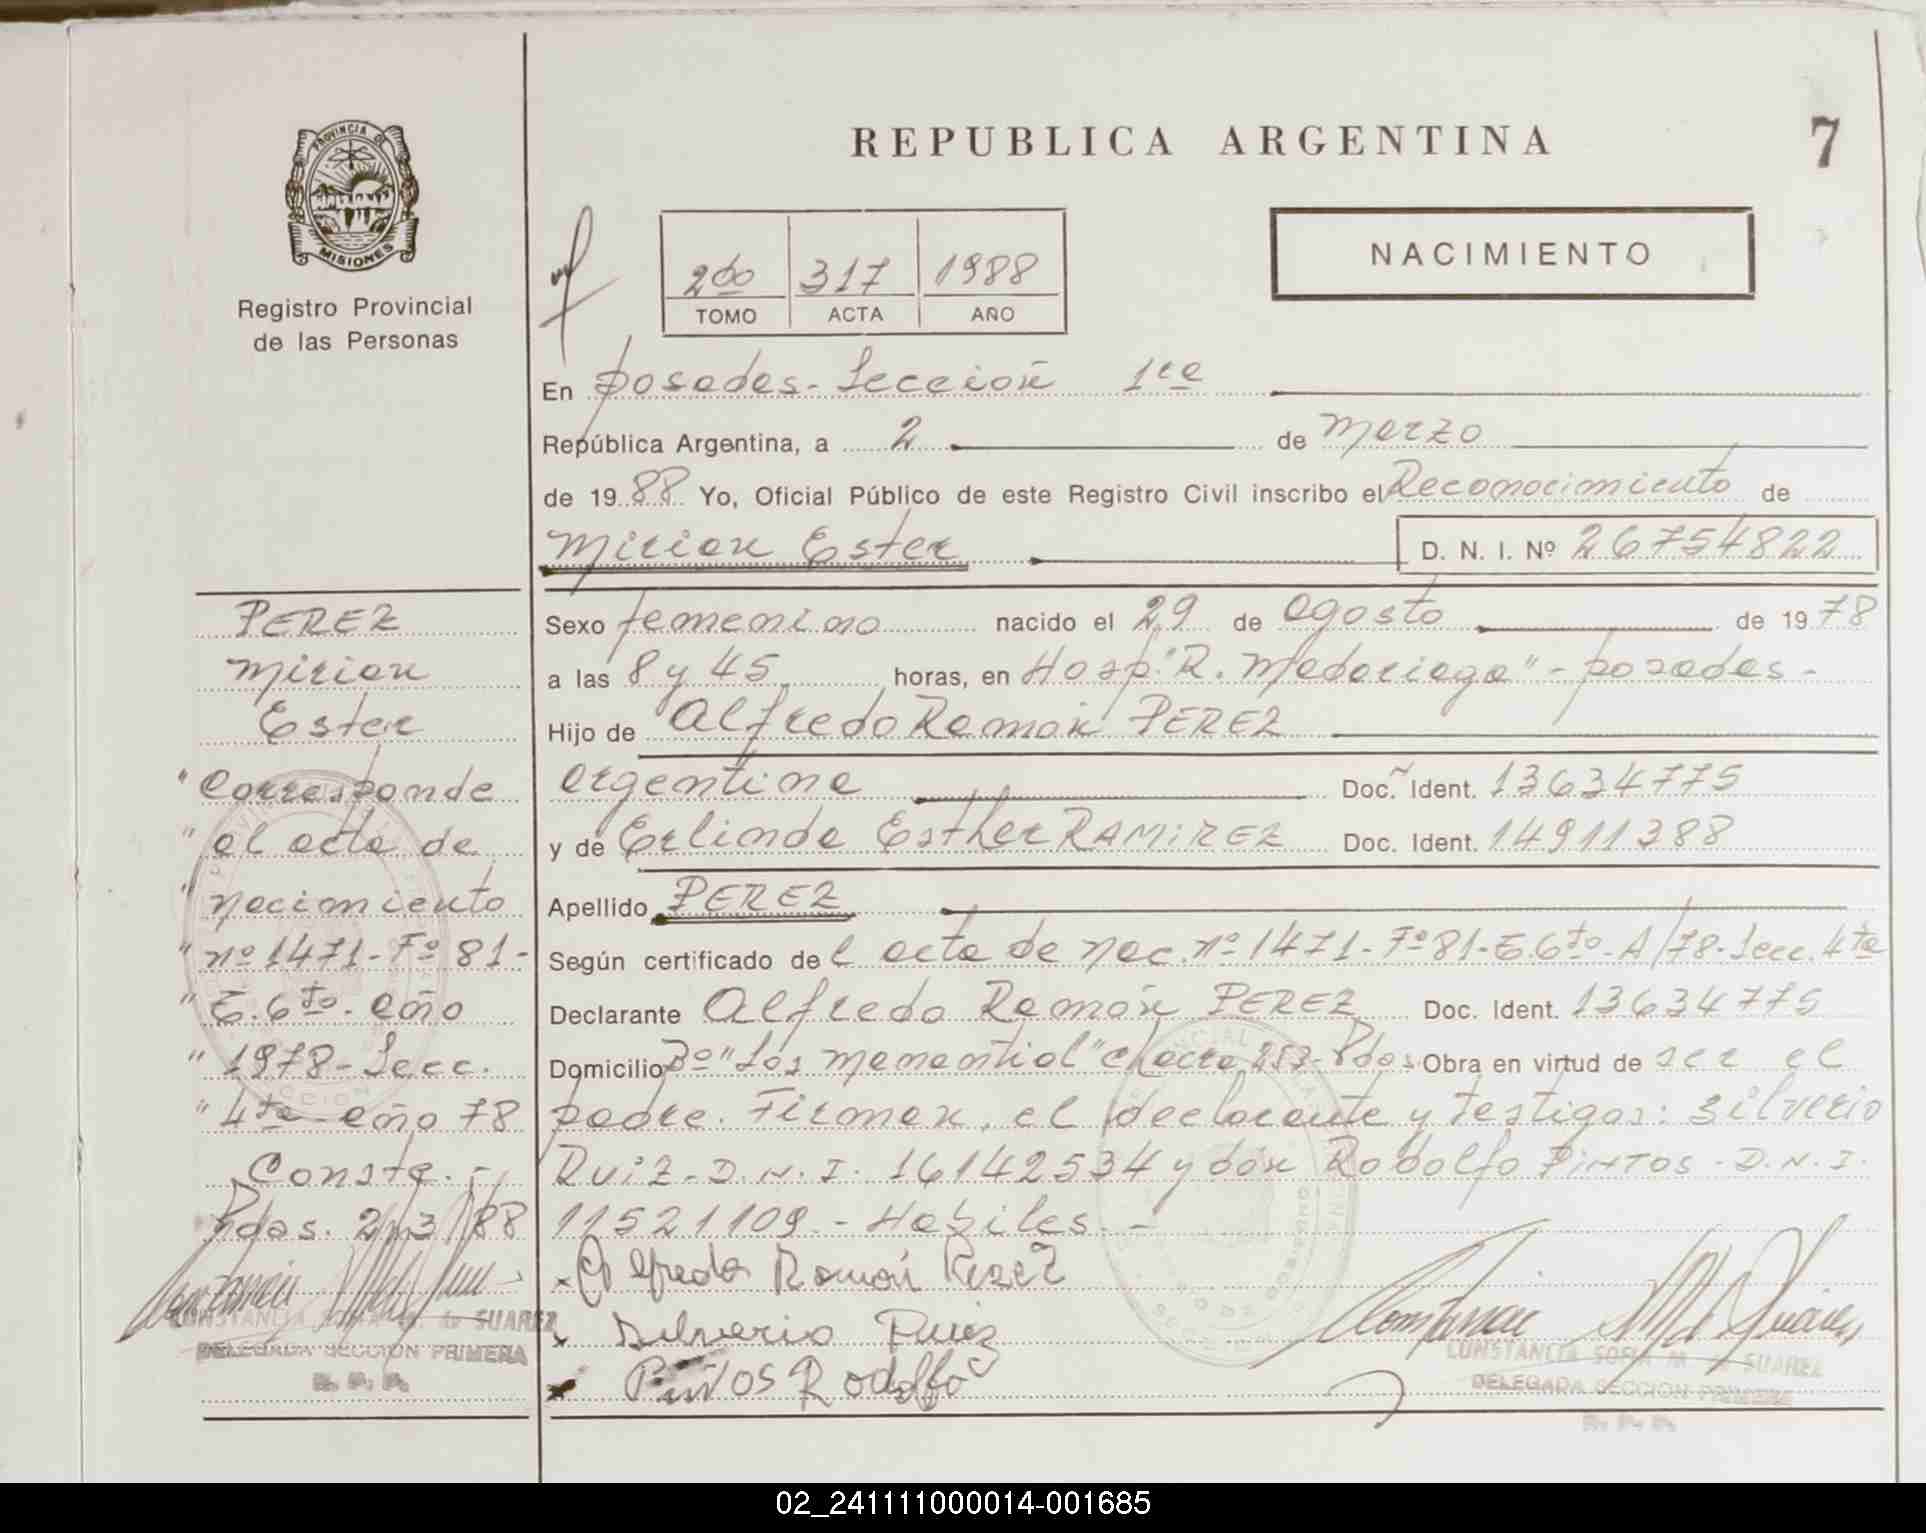 REPUBLICA ARGENTINA
7
PROVINCIA DE
MISIONES
Registro Provincial
de las Personas
2do 317 1988
TOMO ACTA AÑO
NACIMIENTO
En Posadas - Sección 1ra
República Argentina, a 2 de Marzo
de 1988 Yo, Oficial Público de este Registro Civil inscribo el Reconocimiento de
Mirian Ester D. N. I. Nº 26754822
Sexo femenino nacido el 29 de agosto de 1978
a las 8 y 45 horas, en Hosp. "R. Madariaga" - Posadas -
Hijo de Alfredo Ramón PEREZ
argentina Doc. Ident. 13634775
y de Erlinda Esther RAMIREZ Doc. Ident. 14911388
Apellido PEREZ
Según certificado del acta de nac. nº 1471 - Fº 81 - T. 6to - A/78 - Secc. 4ta
Declarante Alfredo Ramón PEREZ Doc. Ident. 13634775
Domicilio Bº "Los Manantial" Chacra 253 - Pdas. Obra en virtud de ser el
padre. Firman, el declarante y testigos: Silverio
RUIZ - D.N.I. 16142534 y don Rodolfo PINTOS - D.N.I.
11521109. - Habiles. -
x Alfredo Ramón Perez
x Silverio Ruiz
x Pintos Rodolfo
CONSTANCIA SOFIA M. de SUAREZ
DELEGADA SECCION PRIMERA
R. P. P.
PEREZ
Mirian
Ester
"Corresponde
"al acta de
"nacimiento
"nº 1471 - Fº 81 -
"T. 6to - año
"1978 - Secc.
"4ta año 78
Conste. -
Pdas. 2/3/88
CONSTANCIA SOFIA M. de SUAREZ
DELEGADA SECCION PRIMERA
R. P. P.
02_241111000014-001685